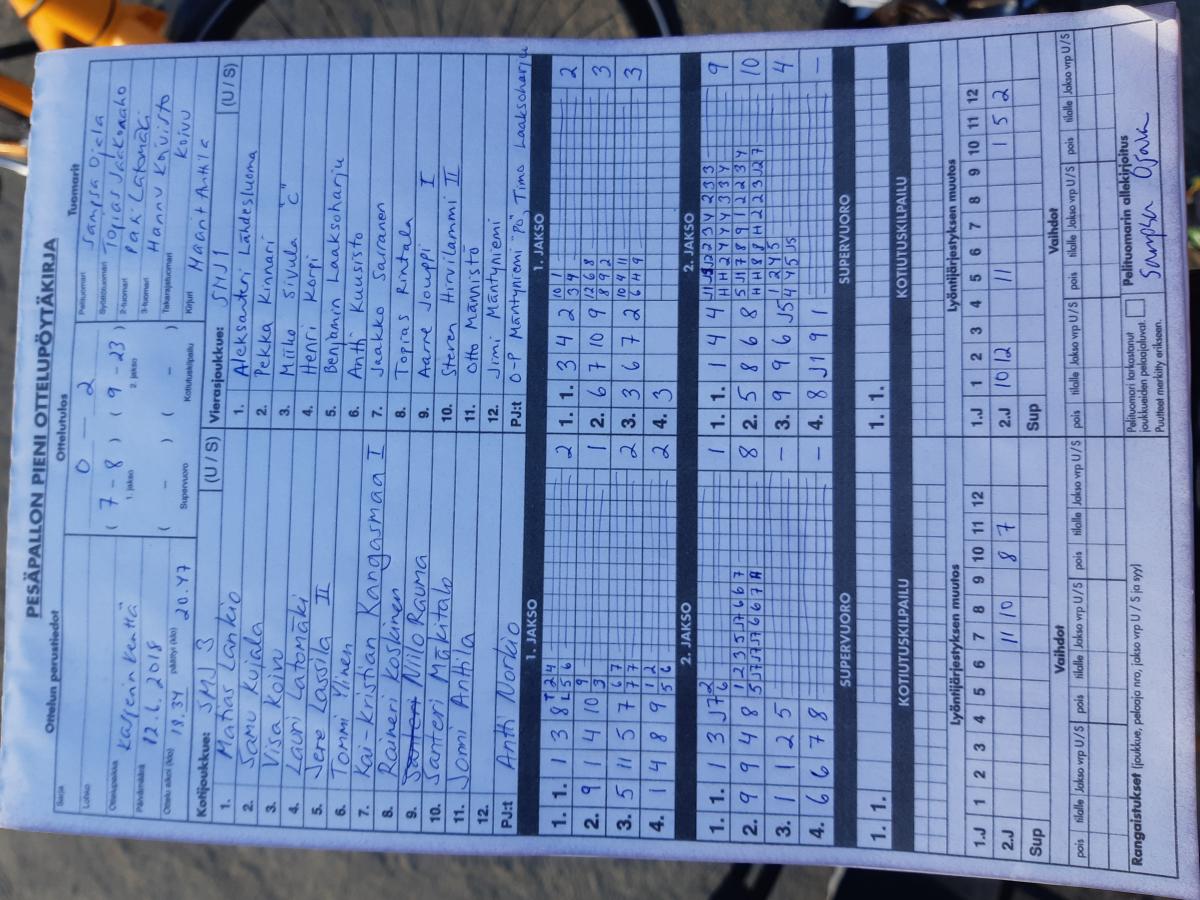 PESÄPALLON PIENI OTTELUPÖYTÄKIRJA
Ottelun perustiedot
Ottelutulos
Tuomarit
Sarja
Lohko
Ottelupaikka
Päivämäärä 12.6.2018
Ottelu alkoi (klo) 18.34 päättyi (klo) 20.47
0 - 2
( 7 - 8 ) ( 9 - 23 )
1. jakso 2. jakso
( - ) ( - )
Supervuoro Kotiutuskilpailu
Pelituomari Sampsa Ojala
Syöttötuomari Topias Jaakonaho
2-tuomari Paik. Latomäki
3-tuomari Hannu Koivisto
Takarajatuomari Koivu
Kirjuri Maarit Anttila
Kotijoukkue: SMJ 3 (U / S)
1. Matias Lankio
2. Samu Kujala
3. Visa Koivu
4. Lauri Latomäki
5. Jere Lassila II
6. Tommi Ylinen
7. Kai-Kristian Kangasmaa I
8. Raineri Koskinen
9. Niilo Rauma
10. Santeri Mäkitalo
11. Jonni Anttila
12.
PJ:t Antti Norkio
Vierasjoukkue: SNJ1 (U / S)
1. Aleksanteri Lähdesluoma
2. Pekka Kinnari
3. Miiko Sivula "C"
4. Henri Korpi
5. Benjamin Laaksoharju
6. Antti Kuusisto
7. Jaakko Saranen
8. Topias Rintala
9. Aarne Jouppi I
10. Steren Hirvilammi II
11. Otto Männistö
12. Jimi Mäntyniemi
PJ:t O-P Mäntyniemi "PO", Timo Laaksoharju
1. JAKSO
1. 1. 1 3 8 2
2. 9 1 4 10 1
3. 5 11 5 7 2
4. 1 4 8 9 2
1. JAKSO
1. 1. 3 4 2 2
2. 6 7 10 9 3
3. 3 6 7 2 3
4. 3
2. JAKSO
1. 1. 1 3 J7 1
2. 9 9 4 8 8
3. 1 1 2 5 –
4. 6 6 7 8 –
2. JAKSO
1. 1. 1 4 4 9
2. 5 8 6 8 10
3. 9 9 6 J5 4
4. 8 J1 9 1 –
SUPERVUORO
1. 1.
SUPERVUORO
1. 1.
KOTIUTUSKILPAILU
KOTIUTUSKILPAILU
Lyöntijärjestyksen muutos
1.J 1 2 3 4 5 6 7 8 9 10 11 12
2.J 11 10 8 7
Sup
Lyöntijärjestyksen muutos
1.J 1 2 3 4 5 6 7 8 9 10 11 12
2.J 10 12 11 1 5 2
Sup
Vaihdot
pois tilalle Jakso vrp U/S pois tilalle Jakso vrp U/S pois tilalle Jakso vrp U/S
Vaihdot
pois tilalle Jakso vrp U/S pois tilalle Jakso vrp U/S pois tilalle Jakso vrp U/S
Rangaistukset (joukkue, pelaaja nro, jakso vrp U / S ja syy)
Pelituomari tarkastanut
joukkueiden pelaajaluvat.
Puutteet merkitty erikseen.
Pelituomarin allekirjoitus
Sampsa Ojala